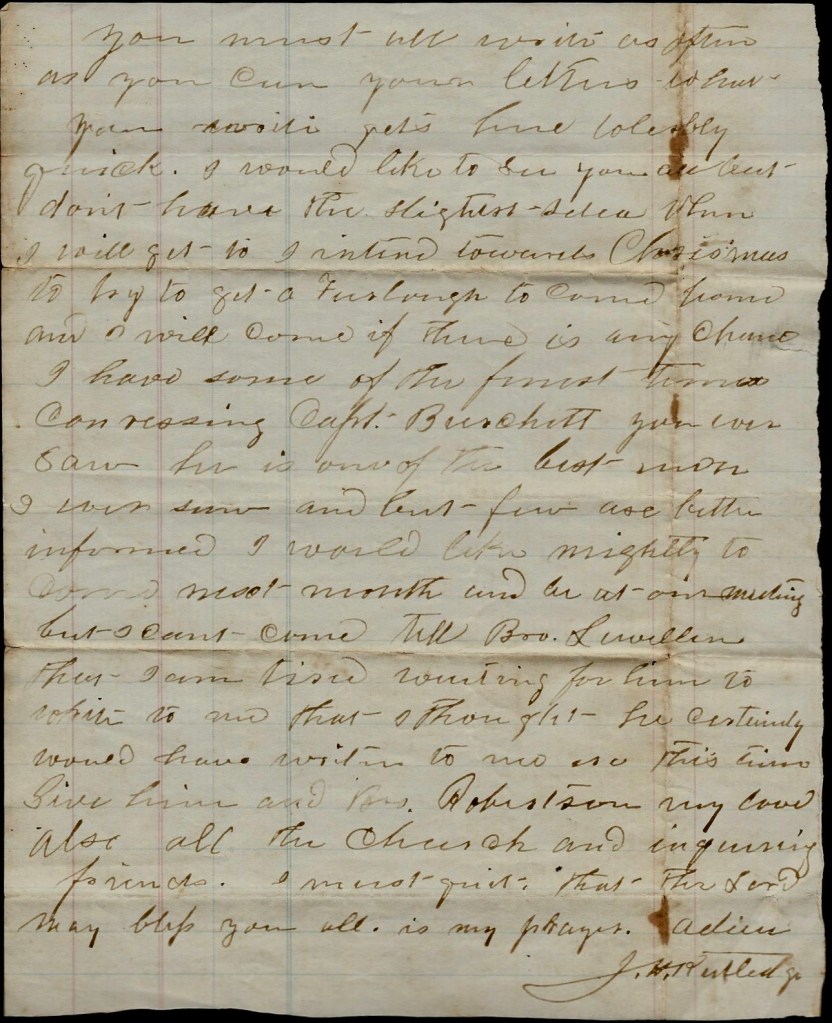 You must all write as often
as you can your letters what
you write gets here tolerbly
quick. I would like to see you all but
dont have the slightest idea when
I will get to I intend towards Chrismas
to try to get a Furlough to come home
and I will come if there is any chance
I have some of the finest times
Conversing Capt. Burchett you ever
Saw he is one of the best men
I ever saw and but few are better
informed I would like mightly to
come next month and be at our meeting
but I cant come Tell Bro. Lewellen
that I am tired waiting for him to
write to me that I thought he certainly
would have writen to me ere this time
Give him and Bro. Robertson my love
also all the Church and inquiring
friends. I must quit. that the Lord
may bless you all. is my prayer. adieu
J. H. Rutledge